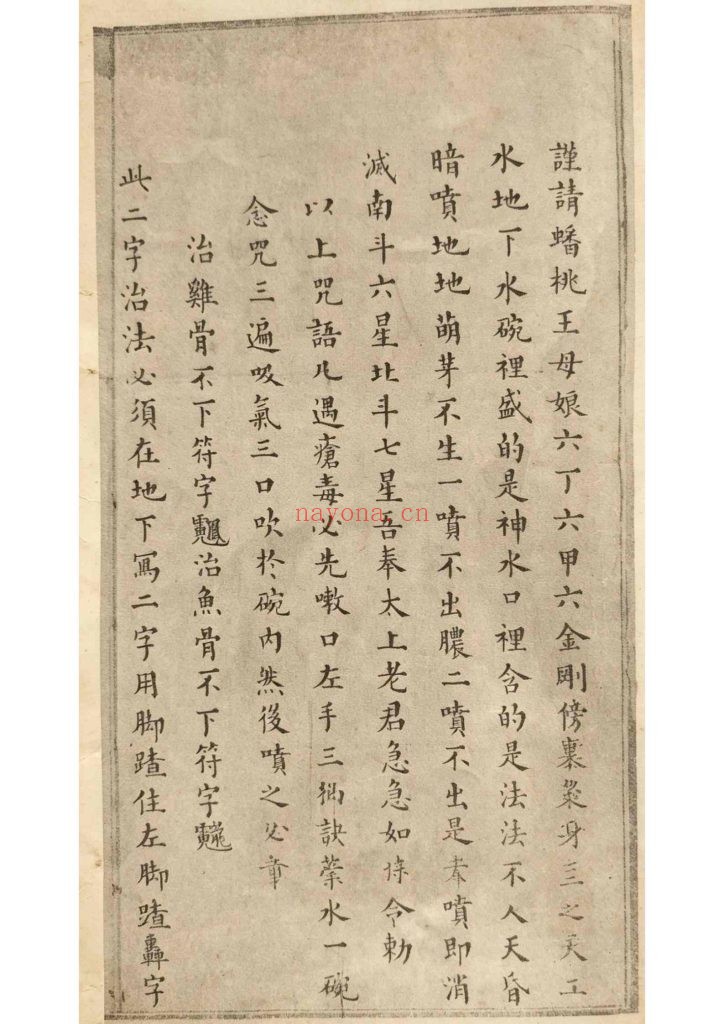 謹請蟠桃王母娘六丁六甲六金剛傍裹身三之天工
水地下水碗裡盛的是神水口裡含的是法法不人天昏
暗噴地地萌芽不生一噴不出膿二噴不出是噴即消
滅南斗六星北斗七星吾奉太上老君急急如律令勅
以上咒語凡遇瘡毒必先嗽口左手三訣水一碗
念咒三遍吸氣三口吹於碗內然後噴之必章
治雞骨不下符字治魚骨不下符字
此二字治法必須在地下寫二字用脚蹅住左脚蹅轟字
nayona.cn